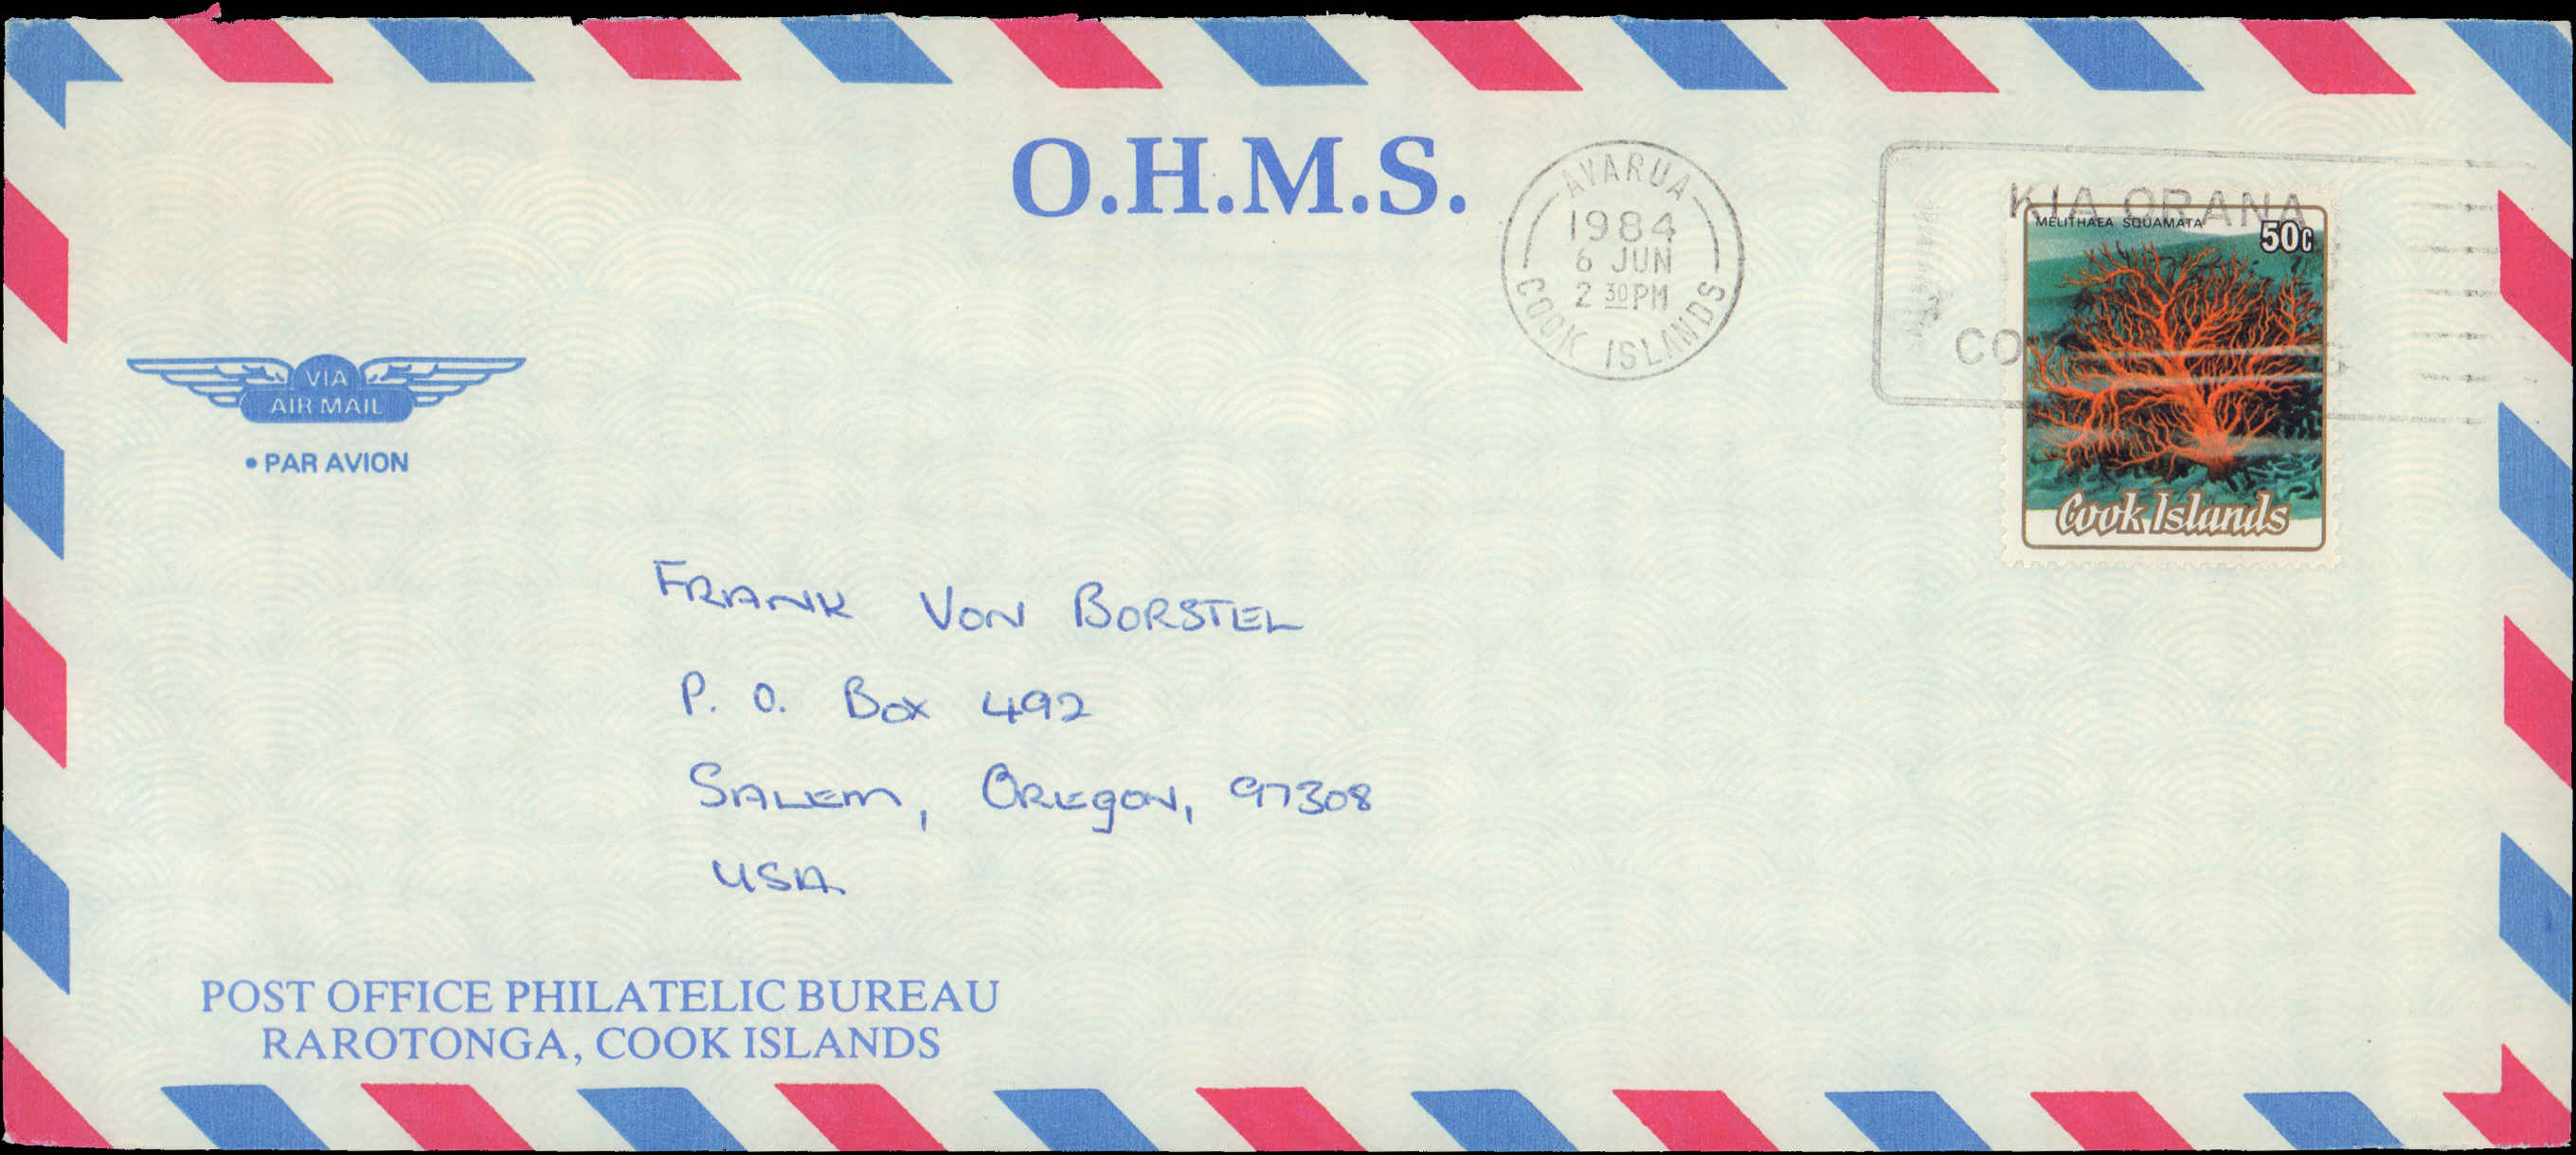 O.H.M.S.
AVARUA
1984
6 JUN
2 30PM
COOK ISLANDS
KIA ORANA
MELITHAEA SQUAMATA
50c
Cook Islands
VIA
AIR MAIL
• PAR AVION
FRANK VON BORSTEL
P. O. BOX 492
SALEM, OREGON, 97308
USA
POST OFFICE PHILATELIC BUREAU
RAROTONGA, COOK ISLANDS